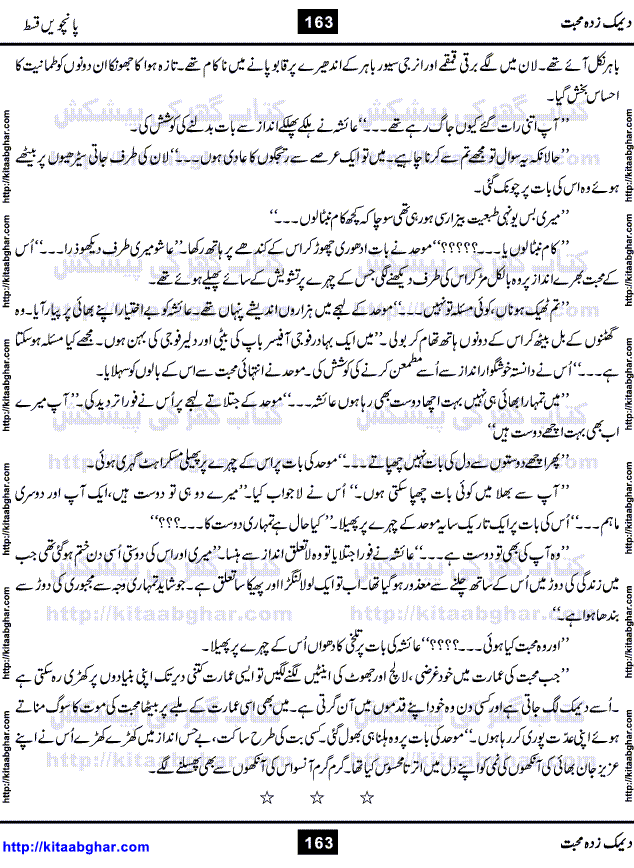 دیمک زدہ محبت 163 پانچویں قسط
باہر نکل آئے تھے۔ لان میں لگے برقی قمقمے اور انرجی سیور باہر کے اندھیرے پر قابو پانے میں ناکام تھے۔ تازہ ہوا کا جھونکا ان دونوں کو طمانیت کا
احساس بخش گیا۔
’’آپ اتنی رات گئے کیوں جاگ رہے تھے۔۔۔‘‘ عائشہ نے ہلکے پھلکے انداز سے بات بدلنے کی کوشش کی۔
’’حالانکہ یہ سوال تو مجھے تم سے کرنا چاہیے۔ میں تو ایک عرصے سے رتجگوں کا عادی ہوں۔۔۔‘‘ لان کی طرف جاتی سیڑھیوں پر بیٹھے
ہوئے وہ اس کی بات پر چونک گئی۔
’’میری بس یونہی طبیعت بیزار سی ہو رہی تھی سوچا کہ کچھ کام نپٹا لوں۔۔۔‘‘
’’کام نپٹا لوں یا۔۔۔؟؟؟؟؟‘‘ موحد نے بات ادھوری چھوڑ کر اس کے کندھے پر ہاتھ رکھا۔ ’’عاشو میری طرف دیکھو ذرا۔۔۔‘‘ اُس
کے محبت بھرے انداز پر وہ بالکل مڑ کر اس کی طرف دیکھنے لگی جس کے چہرے پر تشویش کے سائے پھیلے ہوئے تھے۔
’’تم ٹھیک ہو ناں کوئی مسئلہ تو نہیں۔۔۔‘‘ موحد کے لہجے میں ہزاروں اندیشے پنہاں تھے۔ عائشہ کو بے اختیار اپنے بھائی پر پیار آیا۔ وہ
گھٹنوں کے بل بیٹھ کر اس کے دونوں ہاتھ تھام کر بولی۔ ’’میں ایک بہادر فوجی آفیسر باپ کی بیٹی اور دلیر فوجی کی بہن ہوں۔ مجھے کیا مسئلہ ہو سکتا
ہے۔۔۔‘‘ اُس نے دانستہ خوشگوار انداز سے اُسے مطمئن کرنے کی کوشش کی۔ موحد نے انتہائی محبت سے اس کے بالوں کو سہلایا۔
’’میں تمہارا بھائی ہی نہیں بہت اچھا دوست بھی رہا ہوں عائشہ۔۔۔‘‘ موحد کے جتلاتے لہجے پر اُس نے فوراً تردید کی۔ ’’آپ میرے
اب بھی بہت اچھے دوست ہیں‘‘
’’پھر اچھے دوستوں سے دل کی بات نہیں چھپاتے۔۔۔‘‘ موحد کی بات پر اس کے چہرے پر پھیلی مسکراہٹ گہری ہوئی۔
’’آپ سے بھلا میں کوئی بات چھپا سکتی ہوں۔‘‘ اُس نے لاجواب کیا۔ ’’میرے دو ہی تو دوست ہیں، ایک آپ اور دوسری
ماہم۔۔۔‘‘ اُس کی بات پر ایک تاریک سایہ موحد کے چہرے پر پھیلا۔ ’’کیا حال ہے تمہاری دوست کا۔۔۔؟؟؟‘‘
’’وہ آپ کی بھی تو دوست ہے۔۔۔‘‘ عائشہ نے فوراً جتلایا تو وہ لاتعلق انداز سے ہنسا۔ ’’میری اور اس کی دوستی اُسی دن ختم ہو گئی تھی جب
میں زندگی کی دوڑ میں اُس کے ساتھ چلنے سے معذور ہو گیا تھا۔ اب تو ایک لولا لنگڑا اور پھیکا سا تعلق ہے۔ جو شاید تمہاری وجہ سے مجبوری کی ڈور سے
بندھا ہوا ہے۔‘‘
’’اور وہ محبت کیا ہوئی۔۔۔؟؟؟؟‘‘ عائشہ کی بات پر تلخی کا دھواں اُس کے چہرے پر پھیلا۔
’’جب محبت کی عمارت میں خود غرضی، لالچ اور جھوٹ کی اینٹیں لگنے لگیں تو ایسی عمارت کتنی دیر تک اپنی بنیادوں پر کھڑی رہ سکتی ہے
۔ اُسے دیمک لگ جاتی ہے اور کسی دن وہ خود اپنے قدموں میں آن گرتی ہے۔ میں بھی اسی عمارت کے ملبے پر بیٹھا محبت کی موت کا سوگ مناتے
ہوئے اپنی عدّت پوری کر رہا ہوں۔‘‘ موحد کی بات پر وہ ہلنا ہی بھول گئی۔ کسی بت کی طرح ساکت، بے حس انداز میں کھڑے کھڑے اُس نے اپنے
عزیز جان بھائی کی آنکھوں کی نمی کو اپنے دل میں اترتا محسوس کیا تھا۔ گرم گرم آنسو اس کی آنکھوں سے بھی پھسلنے لگے۔
☆ ☆ ☆
دیمک زدہ محبت 163 http://kitaabghar.com
کتاب گھر کی پیشکش
http://kitaabghar.com